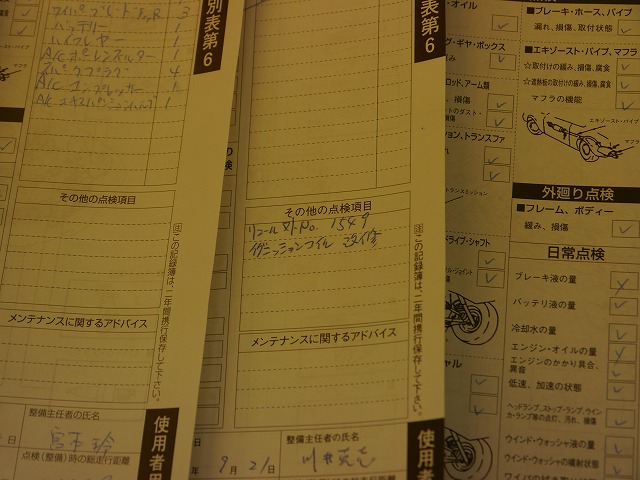 ワイパーブレードラバー 3
バッテリー 1
A/C 1
4
A/C コンプレッサー 1
A/C エキスパンションバルブ 1
別表第6
その他の点検項目
メンテナンスに関するアドバイス
注 この記録簿は、二年間携行保存して下さい。
使用者用
整備主任者の氏名
点検(整備)時の総走行距離
表第6
その他の点検項目
リコール対 No. 1549
イグニッションコイル 改修
メンテナンスに関するアドバイス
注 この記録簿は、二年間携行保存して下さい。
使用
整備主任者の氏名
年 9月 21日
・オイル
グ・ギヤ・ボックス
ロッド、アーム類
損傷
トのダスト・
損傷
ション、トランスファ
トランスミッション
ドライブ・シャフト
ル・ジョイント
■ブレーキ・ホース、パイプ
漏れ、損傷、取付状態
■エキゾースト・パイプ、マフラ
☆取付けの緩み、損傷、腐食
☆遮熱板の取付けの緩み、損傷、腐食
マフラの機能
エキゾースト・パイプ
マフラ
外廻り点検
■フレーム、ボディー
緩み、損傷
日常点検
ブレーキ液の量
バッテリ液の量
冷却水の量
エンジン・オイルの量
エンジンのかかり具合、
異音
低速、加速の状態
ヘッドランプ、ストップ・ランプ、ウインカ・ランプ等の点灯、汚れ、損傷
ウインド・ウォッシャ液の量
ウインド・ウォッシャの噴射状態